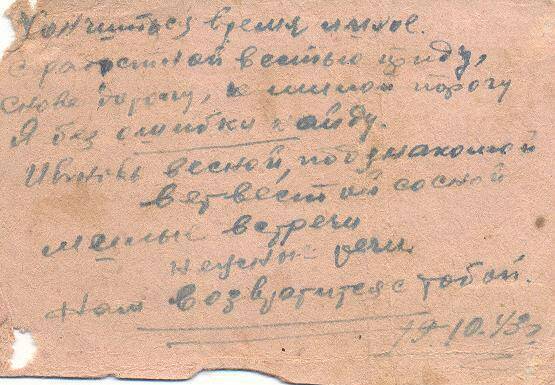 Кончиться время лихое.
с радостной вестью приду,
снова дорогу, к милой порогу
Я без ошибки найду.
И вновь весной под знакомой
ветвестой сосной
милые встречи
нежные речи
Нам возвратится с тобой.
10.43г